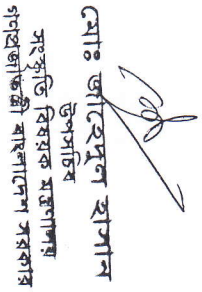 মোঃ জাহেদুল হাসান
উপসচিব
সংস্কৃতি বিষয়ক মন্ত্রণালয়
গণপ্রজাতন্ত্রী বাংলাদেশ সরকার